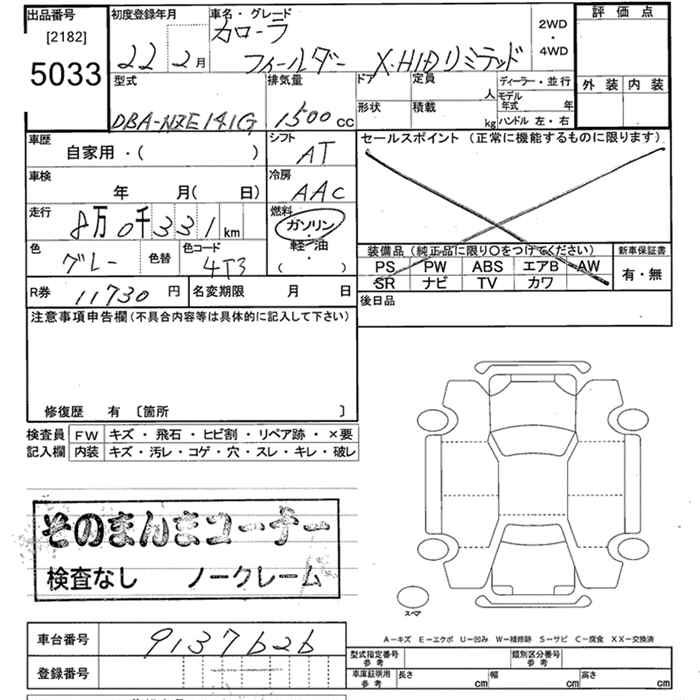 出品番号 初度登録年月 車名・グレード 評価点
[2182] カローラ 2WD
5033 22 2月 フィールダー X・HIDリミテッド ・4WD
型式 排気量 ドア 定員 ディーラー・並行 外装 内装
人 モデル年式 年
DBA-NZE141G 1500cc 形状 積載 kg ハンドル 左・右
車歴 シフト セールスポイント (正常に機能するものに限ります)
自家用・( ) AT
車検 冷房
年 月( 日) AAC
走行 燃料
8万0千331km ガソリン・軽油・( )
色 色替 色コード 装備品(純正品に限り〇をつけてください) 新車保証書
グレー 4T3 PS PW ABS エアB AW 有・無
SR ナビ TV カワ
R券 11730円 名変期限 月 日 後日品
注意事項申告欄(不具合内容等は具体的に記入して下さい)
修復歴 有 〔箇所 〕
検査員 FW キズ・飛石・ヒビ割・リペア跡・×要
記入欄 内装 キズ・汚レ・コゲ・穴・スレ・キレ・破レ
そのまんまコーナー
検査なし ノークレーム
スペア
A-キズ E-エクボ U-凹み W-補修跡 S-サビ C-腐食 XX-交換済
車台番号 9137626
型式指定番号 参考 類別区分番号 参考
登録番号 車庫証明用 参考 長さ cm 幅 cm 高さ cm